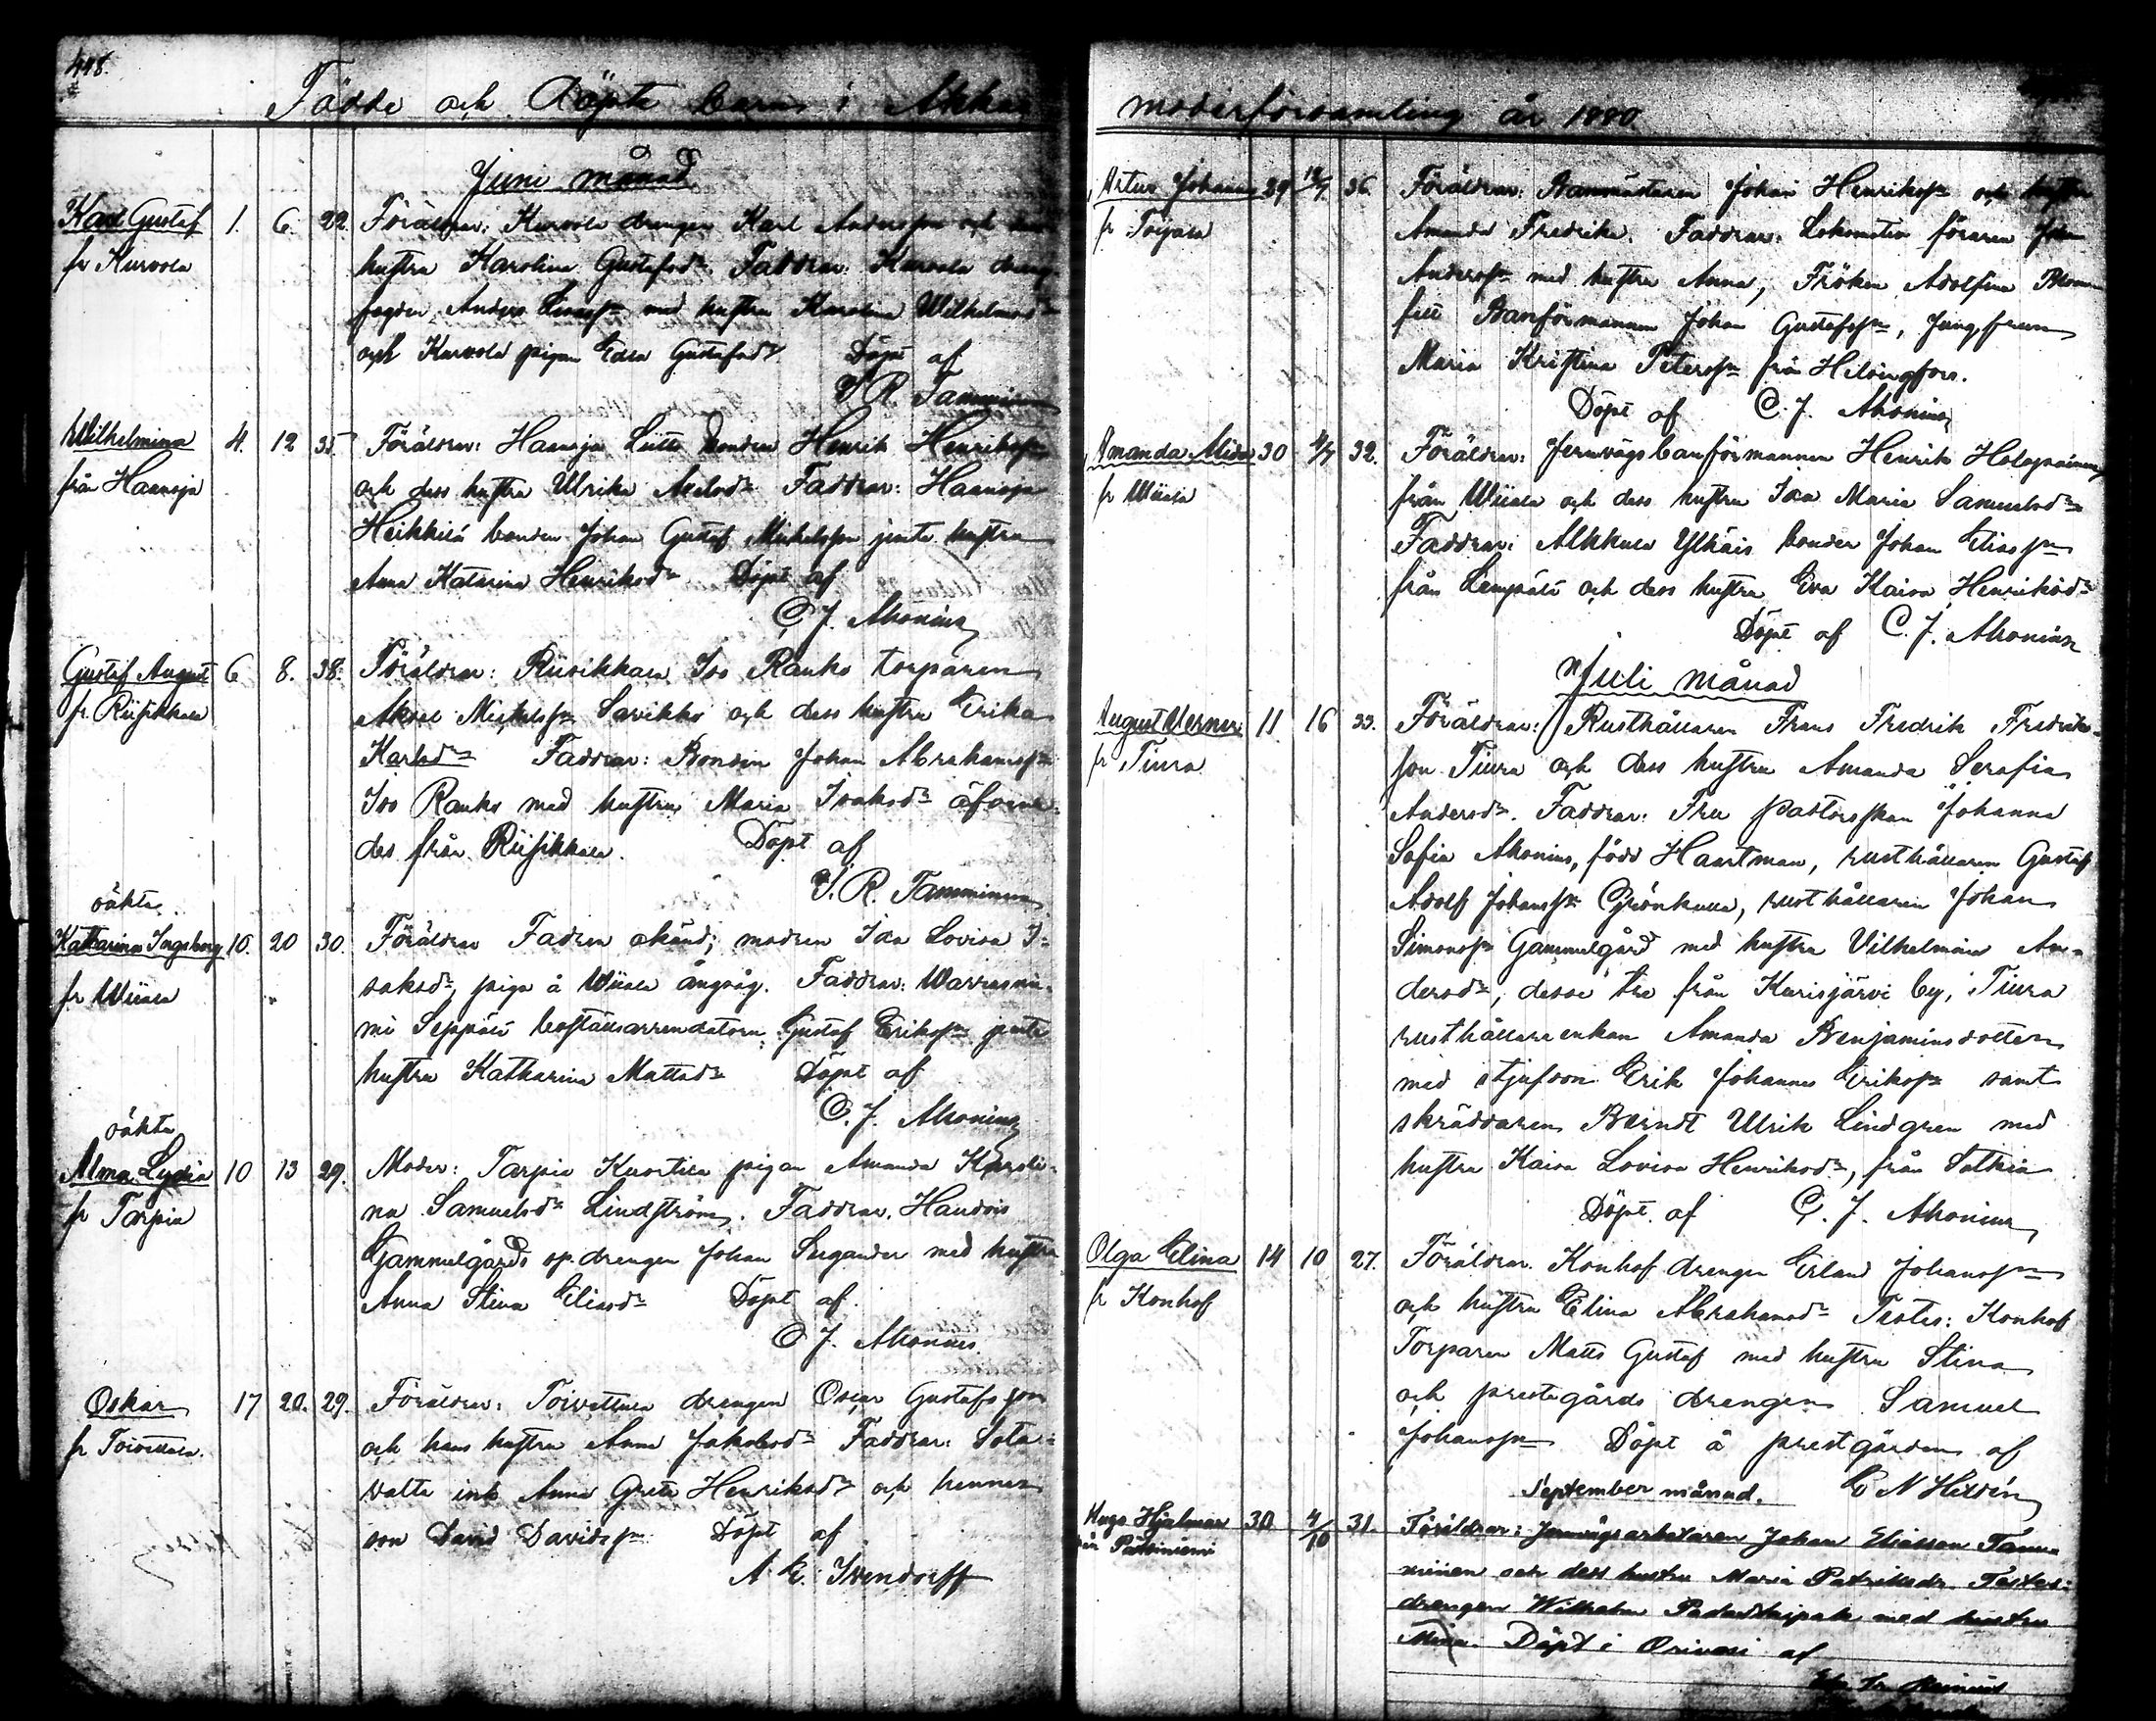 448.
Födde och Döpte barn i Akkas
Juni månad
Karl Gustaf 1. 6. 22. Föräldrar: Kurvola drengen Karl Andersson och dess
fr Kurvola hustru Karolina Gustafsdr. Faddrar: Kurvola dreng-
fogden Anders med hustru Karolina Wilhelmsdr
och Kurvola pigan Edla Gustafsdr Döpt af
Tamminen
Wilhelmina 4. 12 35. Föräldrar: Haansja bonden Henrik Henriksson
från Haansja och dess hustru Ulrika Faddrar: Haansja
Heikkilä bonden Johan Gustaf Mickelsson jemte hustru
Anna Katarina Henriksdr Döpt af
C. J. Ahonius
Gustaf August 6 8. 38. Föräldrar: Riisikkala Iso Ranko torparen
fr. Riisikkala Aksel Mickelsson Savikko och dess hustru Erika
Karlsdr Faddrar: Bonden Johan Abrahamsson
Iso Ranko med hustru Maria Isaksdr äfvenle-
des från Riisikkala. Döpt af
J. R. Tamminen
oäkta
Katharina Ingeborg 10. 20 30. Föräldrar Fadren okänd; modren Ida Lovisa I-
fr Wiiala saksdr, piga å Wiiala ångsåg. Faddrar: Warrasnie-
mi Seppälä bostallsarrendatorn Gustaf Eriksson jemte
hustru Katharina Mattsdr Döpt af
C. J. Ahonius
oäkta
Alma Lydia 10 13 29. Moder: Tarpia Kuortila pigan Amanda Karoli-
fr Tarpia na Samuelsdr Lindström. Faddrar. Haudois
Gammelgårds drengen Johan med hustru
Anna Stina Eliasdr Döpt af
C J. Ahonius.
Oskar 17 20. 29. Föräldrar: Toivottula drengen Oscar Gustafsson
fr Toivottula. och hans hustru Anna Jakobsdr Faddrar: Sota-
valta inh Anna Greta Henriksdr och hennes
son David Davidsson Döpt af
A. E. Ivendorff
moderförsamling år 1880.
Artur Johannes 29 12/7 36. Föräldrar: Banmästaren Johan Henriksson och hustru
fr Toijala Amanda Fredrika. Faddrar: Lokomotiv föraren Johan
Andersson med hustru Anna, Fröken Adolfina
Banförmannen Johan Gustafsson, Jungfrun
Maria Kristina Petersson från Helsingfors.
Döpt af C. J. Ahonius
Amanda Mida 30 4/7 32. Föräldrar: Jernvägsbanförmannen Henrik Holopainen
fr Wiiala från Wiiala och dess hustru Ida Maria Samuelsdr
Faddrar: Alkkula Ylkäis bonden Johan Eliasson
från Lempälä och dess hustru Eva Kaisa Henriksdr
Döpt af C. J. Ahonius
Juli månad
August Verner 11 16 33. Föräldrar: Rusthållaren Frans Fredrik Fredriks-
fr Tiura son Tiura och dess hustru Amanda Serafia
Andersdr. Faddrar: Fru pastorskan Johanna
Sofia Ahonius, född Haartman, rusthållaren Gustaf
Adolf Johansson Grönkulla, rusthållaren Johan
Simonsson Gammelgård med hustru Vilhelmina An-
dersdr, desse tre från Kurisjärvi by, Tiura
rusthållareenkan Amanda Benjaminsdotter
med stjufson Erik Johannes Eriksson samt
skräddaren Berndt Ulrik Lindgren med
hustru Kaisa Lovisa Henriksdr, från Sotkia
Döpt af C. J. Ahonius
Olga Elina 14 10 27. Föräldrar. Konhof drengen Erland Johansson
fr Konhof och hustru Elina Abrahamsdr Testes: Konhof
Torparen Matts Gustaf med hustru Stina
och prestgårds drengen Samuel
Johansson Döpt å prestgården af
September månad. C N Heldén
Hugo Hjalmar 30. 4/10 31. Föräldrar: Jernvägsarbetaren Johan Eliasson Tam-
minen och dess hustru Maria Patriksdr. Testes:
drengen Wilhelm med hustru
Mina. Döpt i Orivesi af